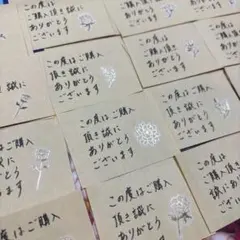 この度はご購入
頂き誠に
ありがとう
ございます
頂き誠に
ありがとう
ございます
この度はご購入
頂き誠に
ありがとう
ございます
この度はご購入
頂き誠に
ありがとう
ございます
この度はご購入
頂き誠に
ありがとう
ございます
この度はご購入
頂き誠に
ありがとう
ございます
この度はご購入
頂き誠に
ありがとう
ございます
度はご購入
この度はご購入
頂き誠に
ありがとう